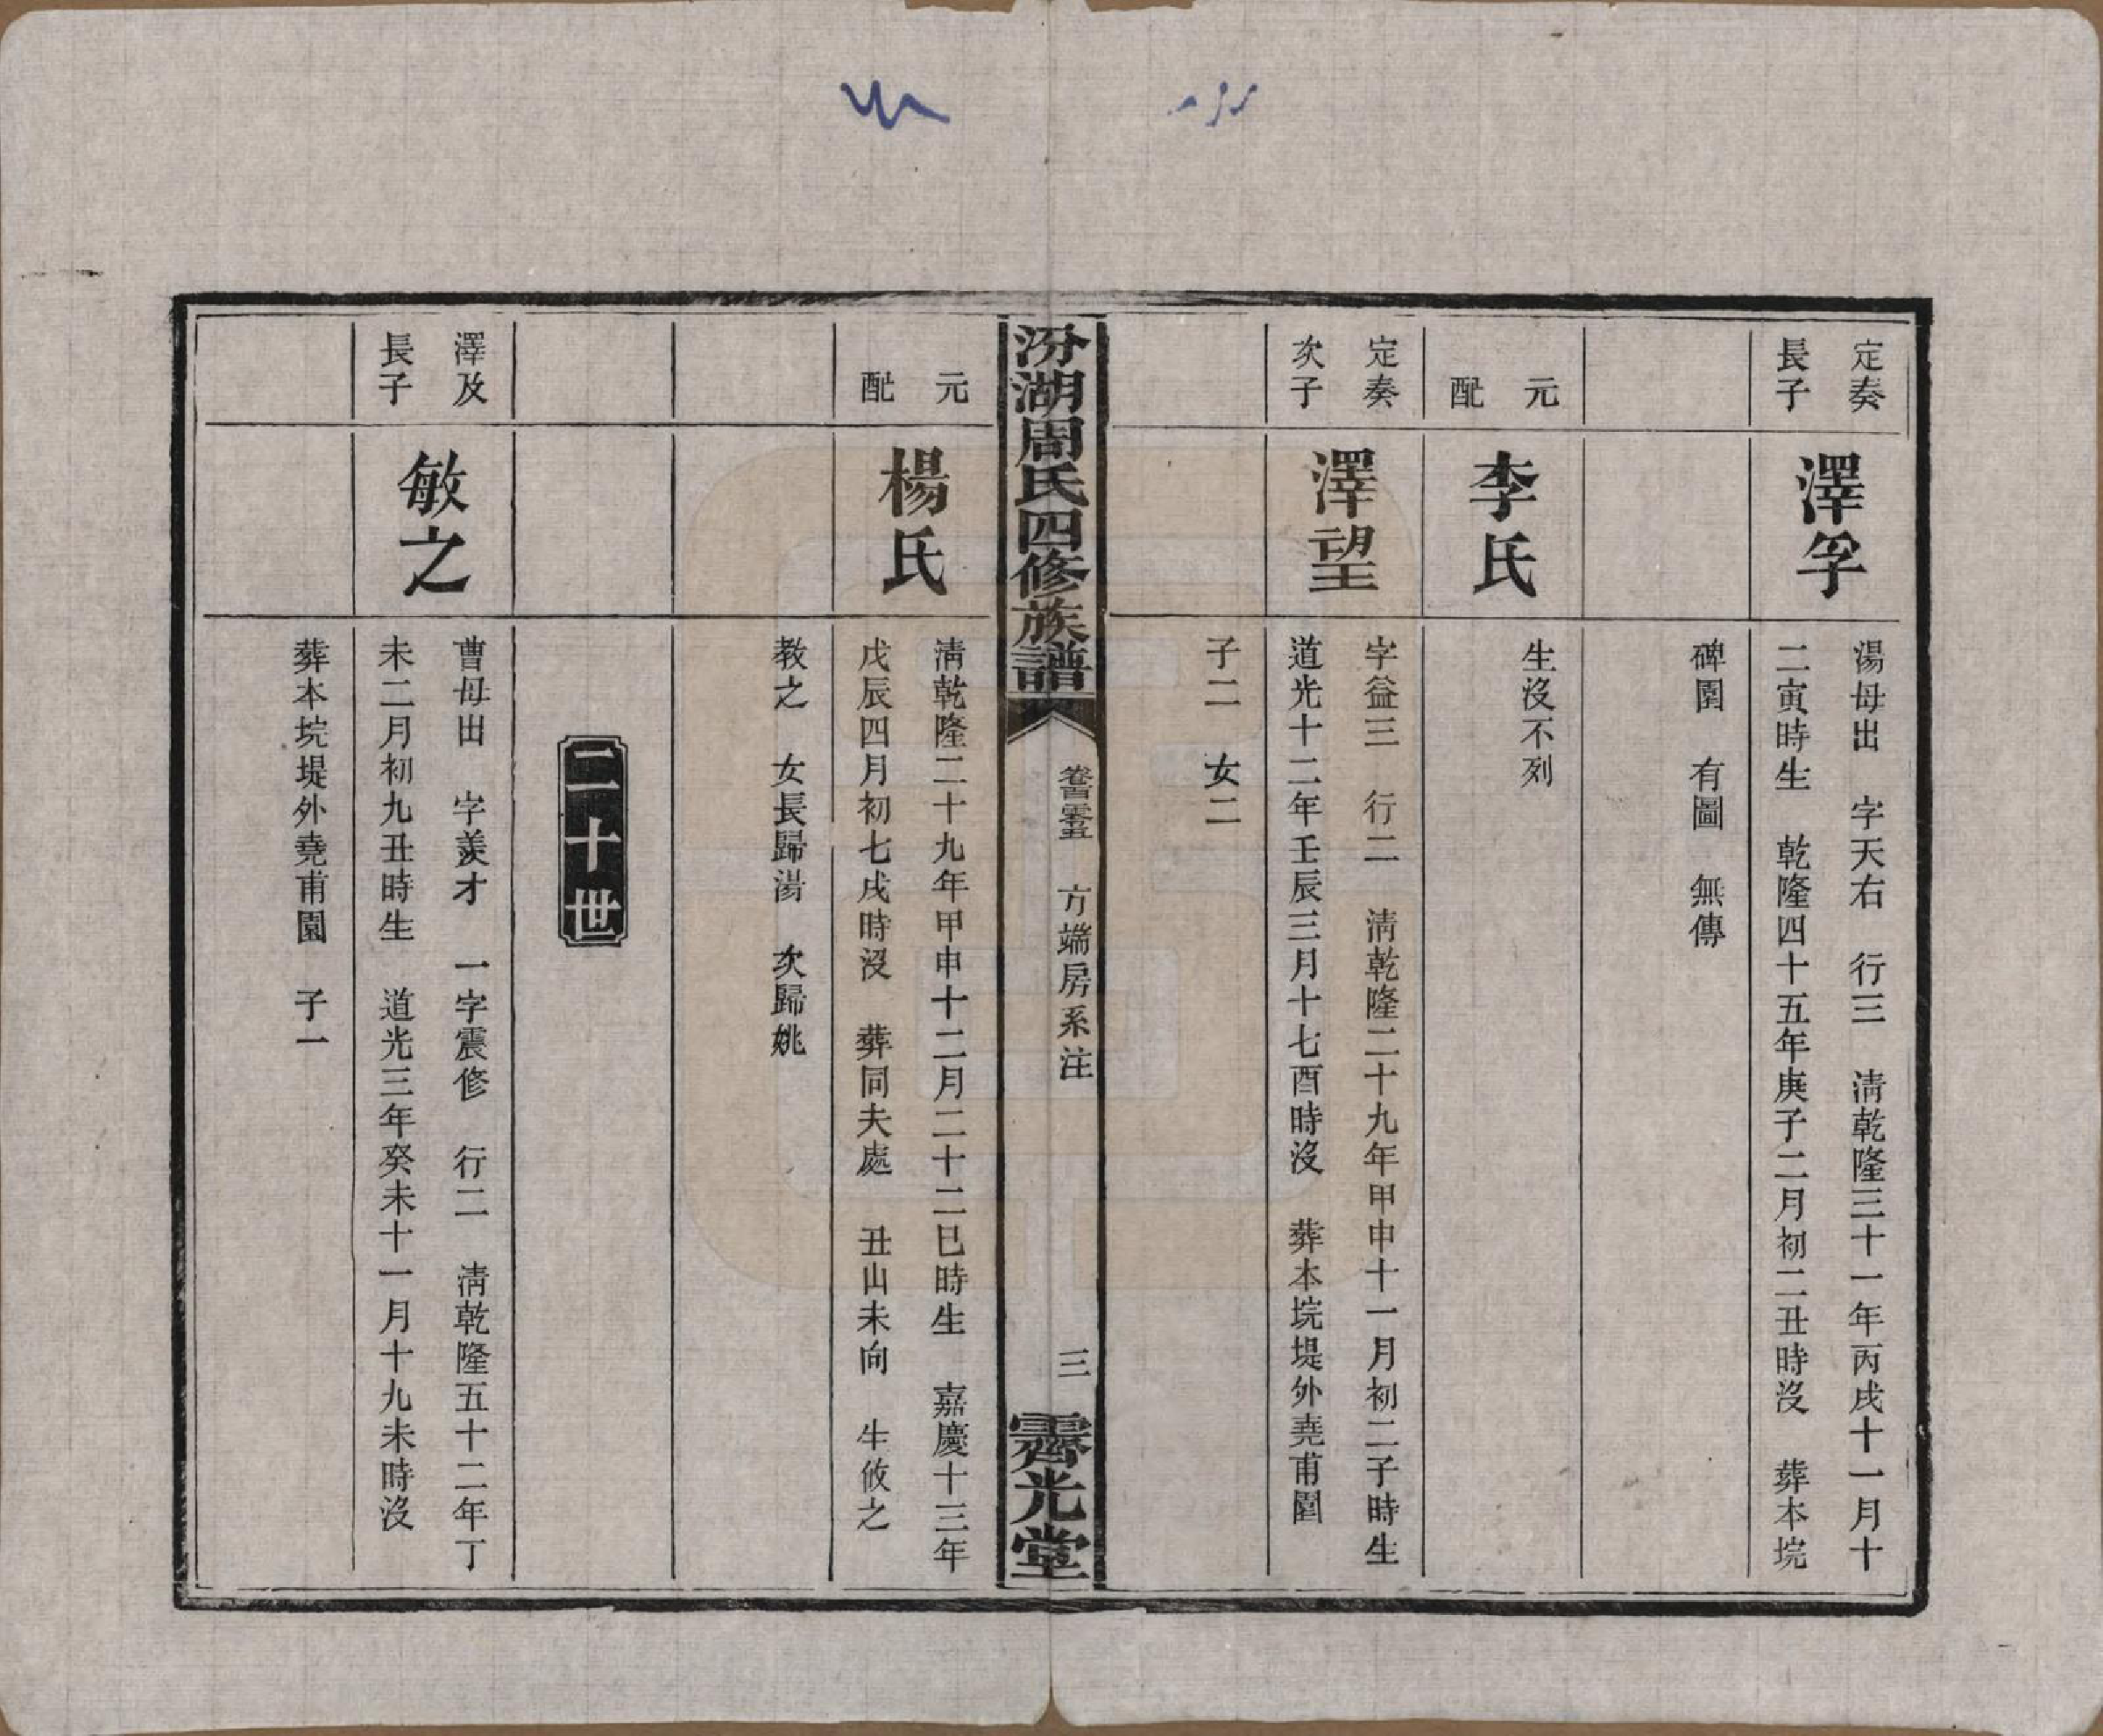 定奏
長子
澤孚
湯母出　字天右　行三　清乾隆三十一年丙戌十一月十
二寅時生　乾隆四十五年庚子二月初二丑時沒　葬本垸
碑園　有圖　無傳
元
配
李氏
生沒不列
定奏
次子
澤望
字益三　行二　清乾隆二十九年甲申十一月初二子時生
道光十二年壬辰三月十七酉時沒　葬本垸堤外堯甫園
子二　女二
汾湖周氏四修族譜
卷苜零五　方端房系注
三
霽光堂
元
配
楊氏
清乾隆二十九年甲申十二月二十二巳時生　嘉慶十三年
戊辰四月初七戌時沒　葬同夫處　丑山未向　生攸之
教之　女長歸湯　次歸姚
二十世
澤及
長子
敏之
曹母出　字羨才　一字震修　行二　清乾隆五十二年丁
未二月初九丑時生　道光三年癸未十一月十九未時沒
葬本垸堤外堯甫園　子一